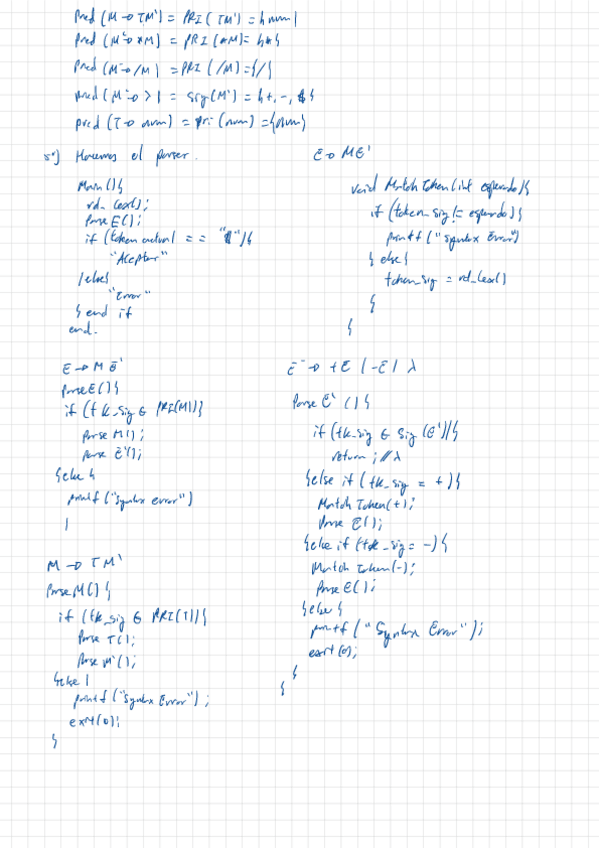 Pred (M → TM') = PRI (TM') = {num}
Pred (M' → *M) = PRI (*M) = {*}
Pred (M' → /M) = PRI (/M) = {/}
Pred (M' → λ) = Sig (M') = {+, -, $}
pred (T → num) = pri (num) = {num}
5º) Hacemos el parser.
Main () {
rd_lex();
Parse E();
if (token actual == "$") {
"Aceptar"
} else {
"Error"
} end if
end.
E → ME'
void Match Token (int esperado) {
if (token_sig != esperado) {
printf ("Syntax Error")
} else {
token_sig = rd_lex()
}
}
E → M E'
Parse E () {
if (tk_sig ∈ PRI(M)) {
Parse M ();
Parse E' ();
} else {
printf ("Syntax error")
}
M → TM'
Parse M () {
if (tk_sig ∈ PRI(T)) {
Parse T ();
Parse M' ();
} else {
printf ("Syntax Error");
exit (0);
}
E' → +E | -E | λ
Parse E' () {
if (tk_sig ∈ Sig (E')) {
return; // λ
} else if (tk_sig = +) {
Match Token (+);
Parse E ();
} else if (tk_sig = -) {
Match Token (-);
Parse E ();
} else {
printf ("Syntax Error");
exit (0);
}
}